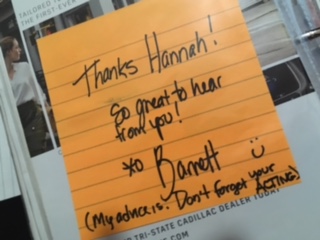 TAILORED
THE FIRST-EVER
Thanks Hannah!
So great to hear
from you!
xo Barrett
(My advice is: Don't forget your ACTING)
TRI-STATE CADILLAC DEALER TODAY
.COM